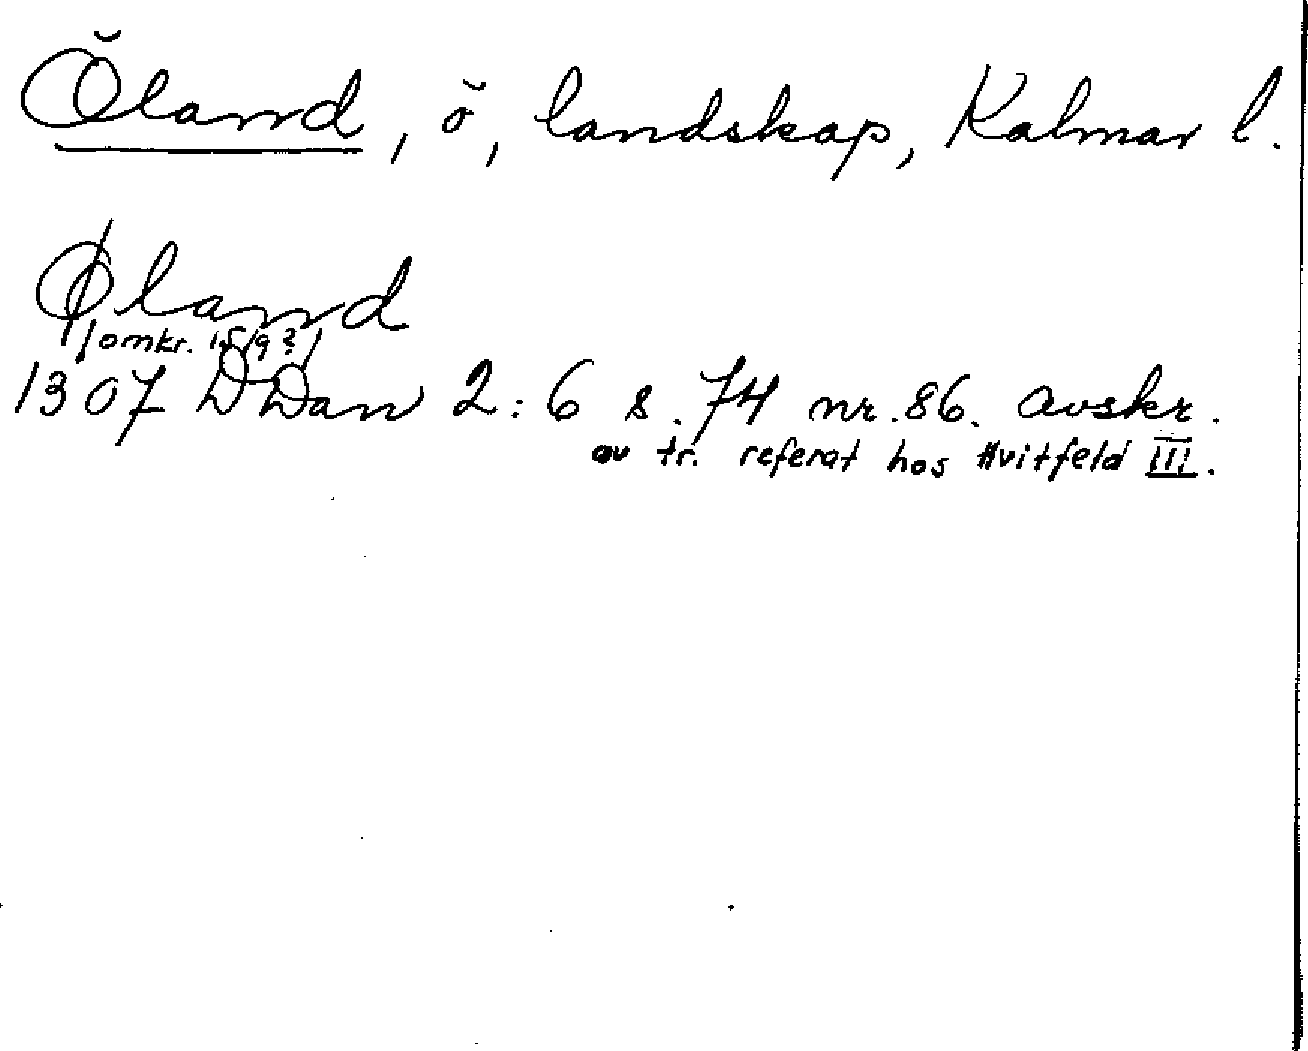 Öland, ö, landskap, Kalmar l.
Øland
(omkr. 15/9?)
1307 DDan 2:6 s. 74 nr. 86. avskr.
av tr. referat hos Hvitfeld III.